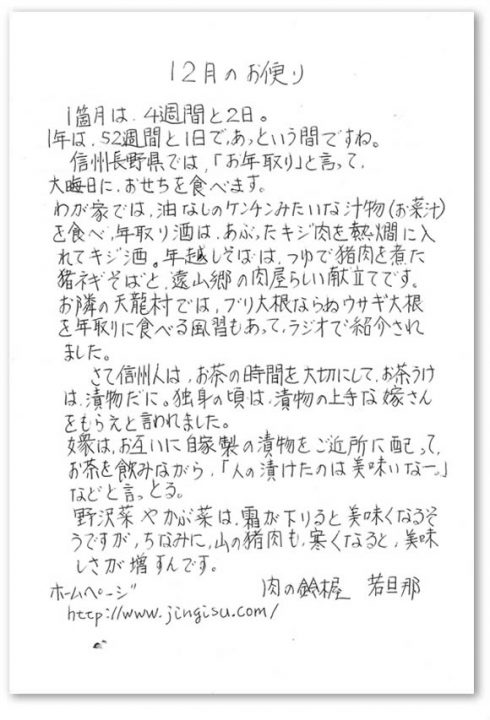 12月のお便り
1箇月は、4週間と2日。
1年は、52週間と1日で、あっという間ですね。
信州長野県では、「お年取り」と言って、
大晦日に、おせちを食べます。
わが家では、油なしのケンチンみたいな汁物(お菜汁)
を食べ、年取り酒は、あぶったキジ肉を熱燗に入
れてキジ酒。年越しそばは、つゆで猪肉を煮た
猪ネギそばと、遠山郷の肉屋らしい献立てです。
お隣の天龍村では、ブリ大根ならぬウサギ大根
を年取りに食べる風習もあって、ラジオで紹介され
ました。
さて信州人は、お茶の時間を大切にして、お茶うけ
は、漬物だに。独身の頃は、漬物の上手な嫁さん
をもらえと言われました。
嬢は、お互いに自家製の漬物をご近所に配って、
お茶を飲みながら、「人の漬けたのは美味いなー。」
などと言っとる。
野沢菜やかぶ菜は、霜が下りると美味くなるそ
うですが、ちなみに、山の猪肉も、寒くなると、美味
しさが増すんです。
肉の鈴木屋 若旦那
ホームページ
http://www.jingisu.com/